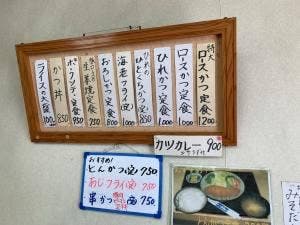 特大
ロースかつ定食 1200
ロースかつ定食 1000
ひれかつ定食 1000
ひれの
ひとくちかつ定食 850
海老フライ(定) 1000
おろしかつ定食 800
生姜焼定食 750
ポークソテー定食 950
かつ丼 850
ライスの大盛 100
カツカレー 900
おすすめ!
とんかつ(定) 750
あじフライ(定) 750
串かつ(定) 750